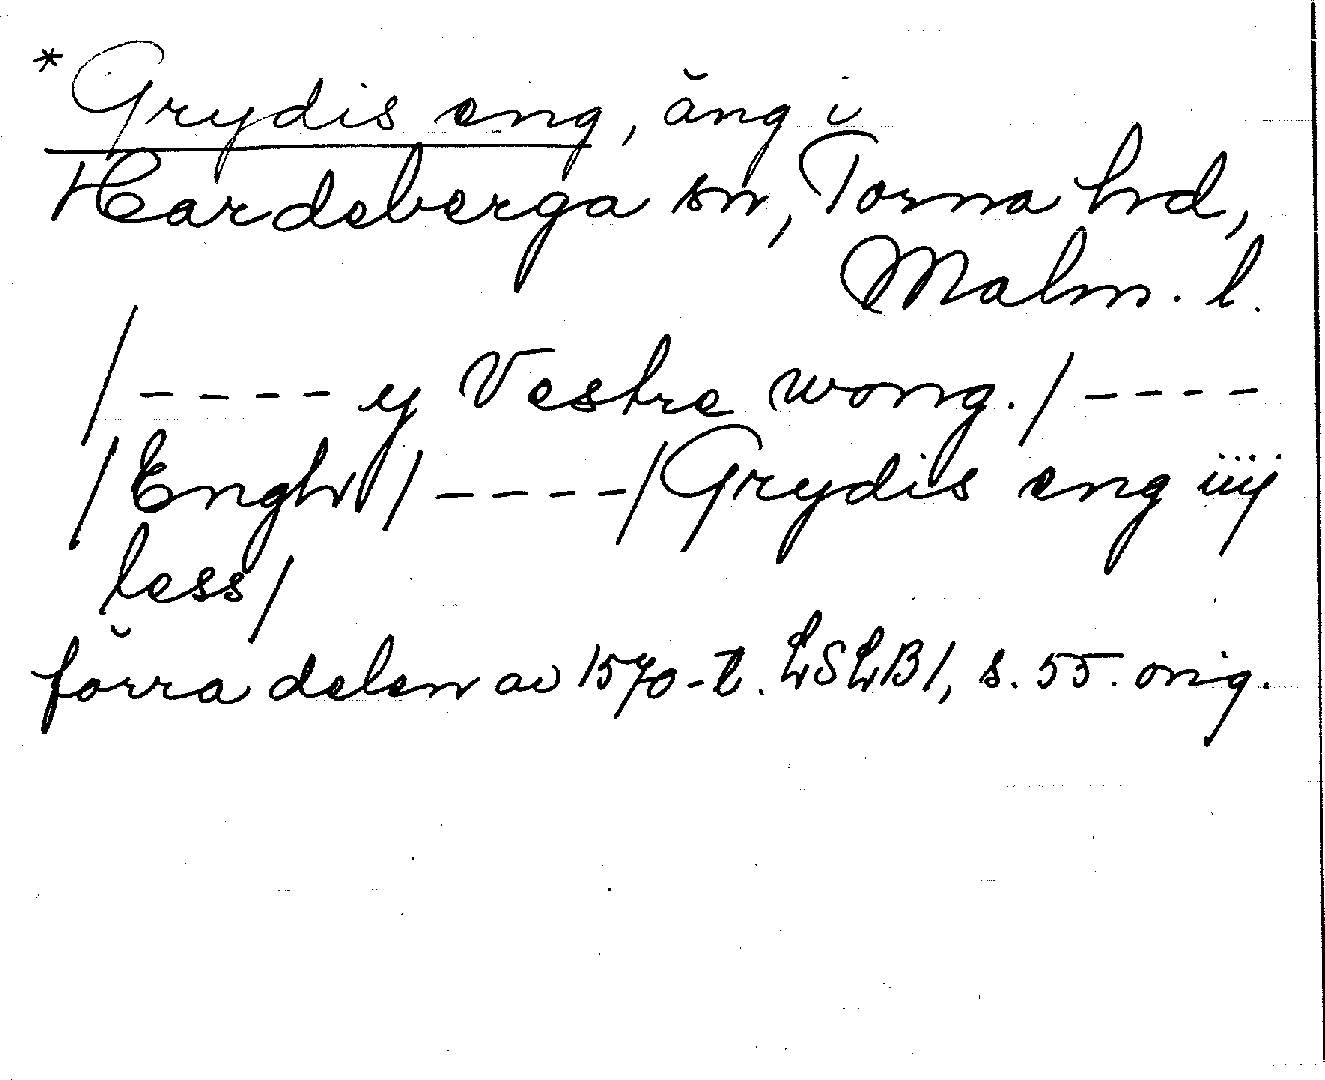 *Grydis eng, äng i
Hardeberga sn, Torna hrd,
Malm. l.
/---- y Vestre wong./----
/Engh/----/Grydis eng iiij
less/
förra delen av 1570-t. LSLB1, s. 55. orig.